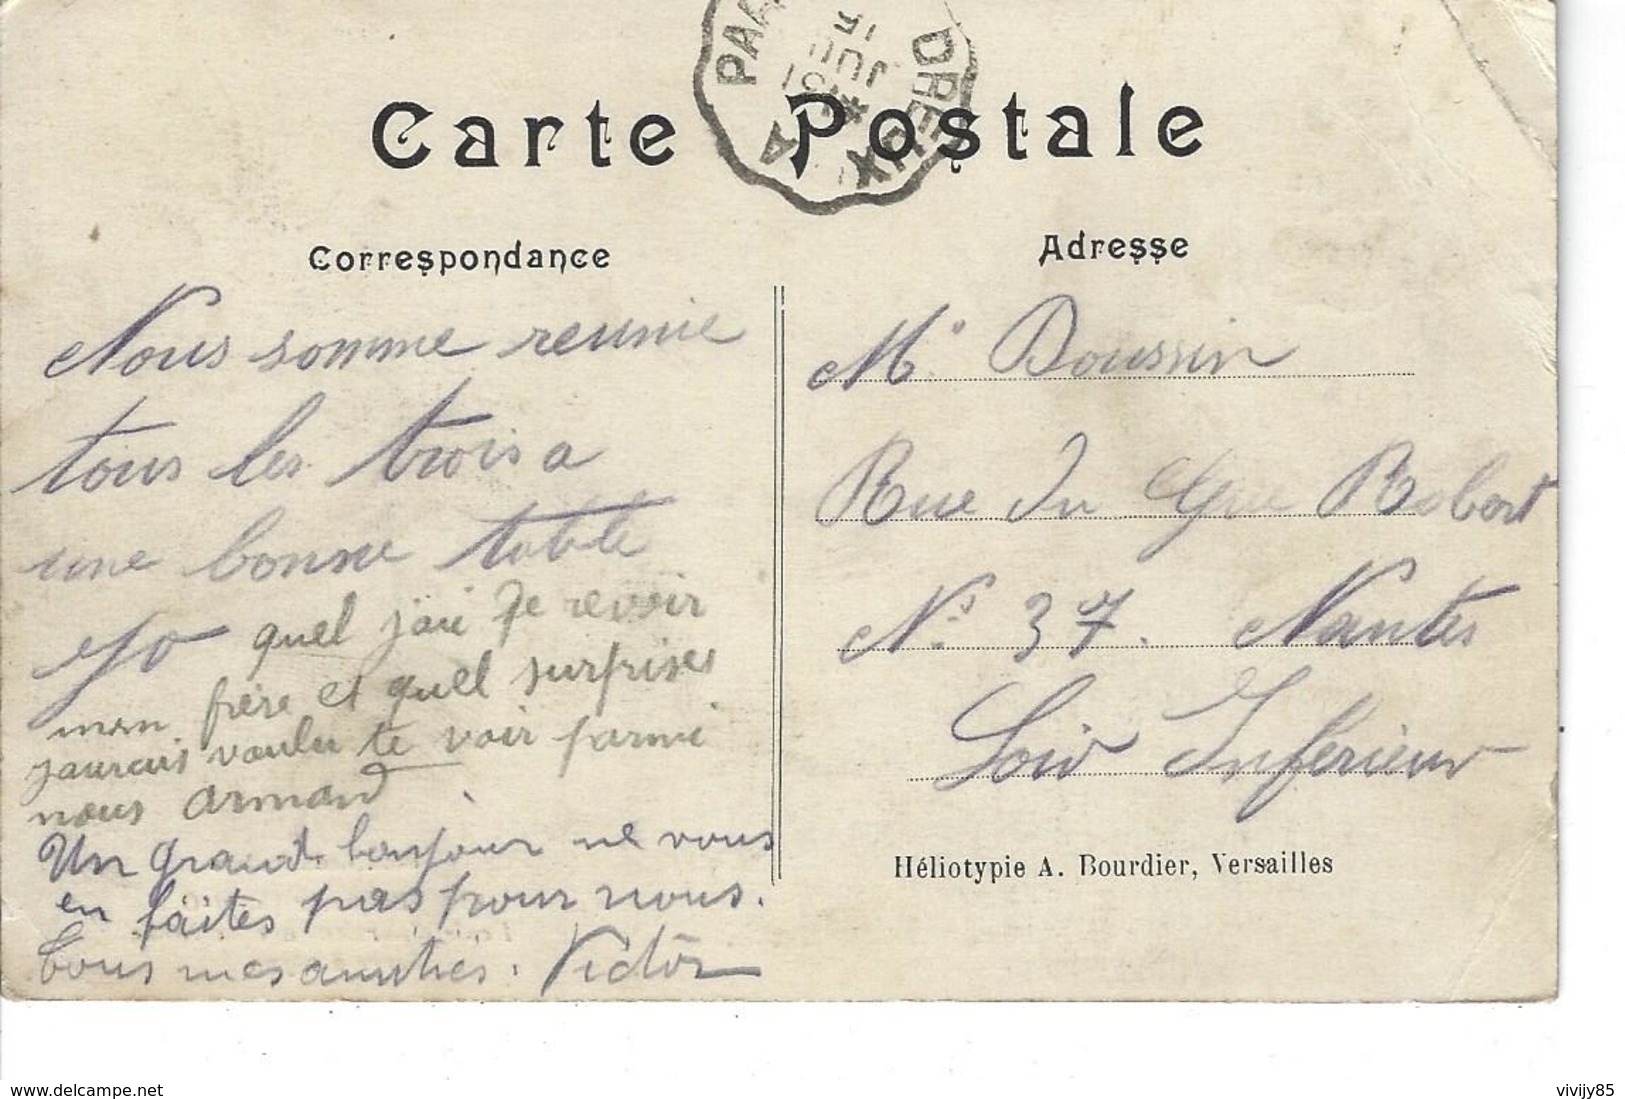 PAR
DREUX
A
Carte Postale
Correspondance
Adresse
Nous somme reunie
tous les trois a
une bonne table
Jo
quel joie de revoir
mon frère et quel surprises
jaurais voulu te voir parmi
nous Armand
Un grand bonjour ne vous
en faites pas pour nous.
Tous mes amitiés. Victor
Mr Doussin
Rue du Gué Robert
No 37. Nantes
Loir Inferieur
Héliotypie A. Bourdier, Versailles
www.delcampe.net
vivijy85